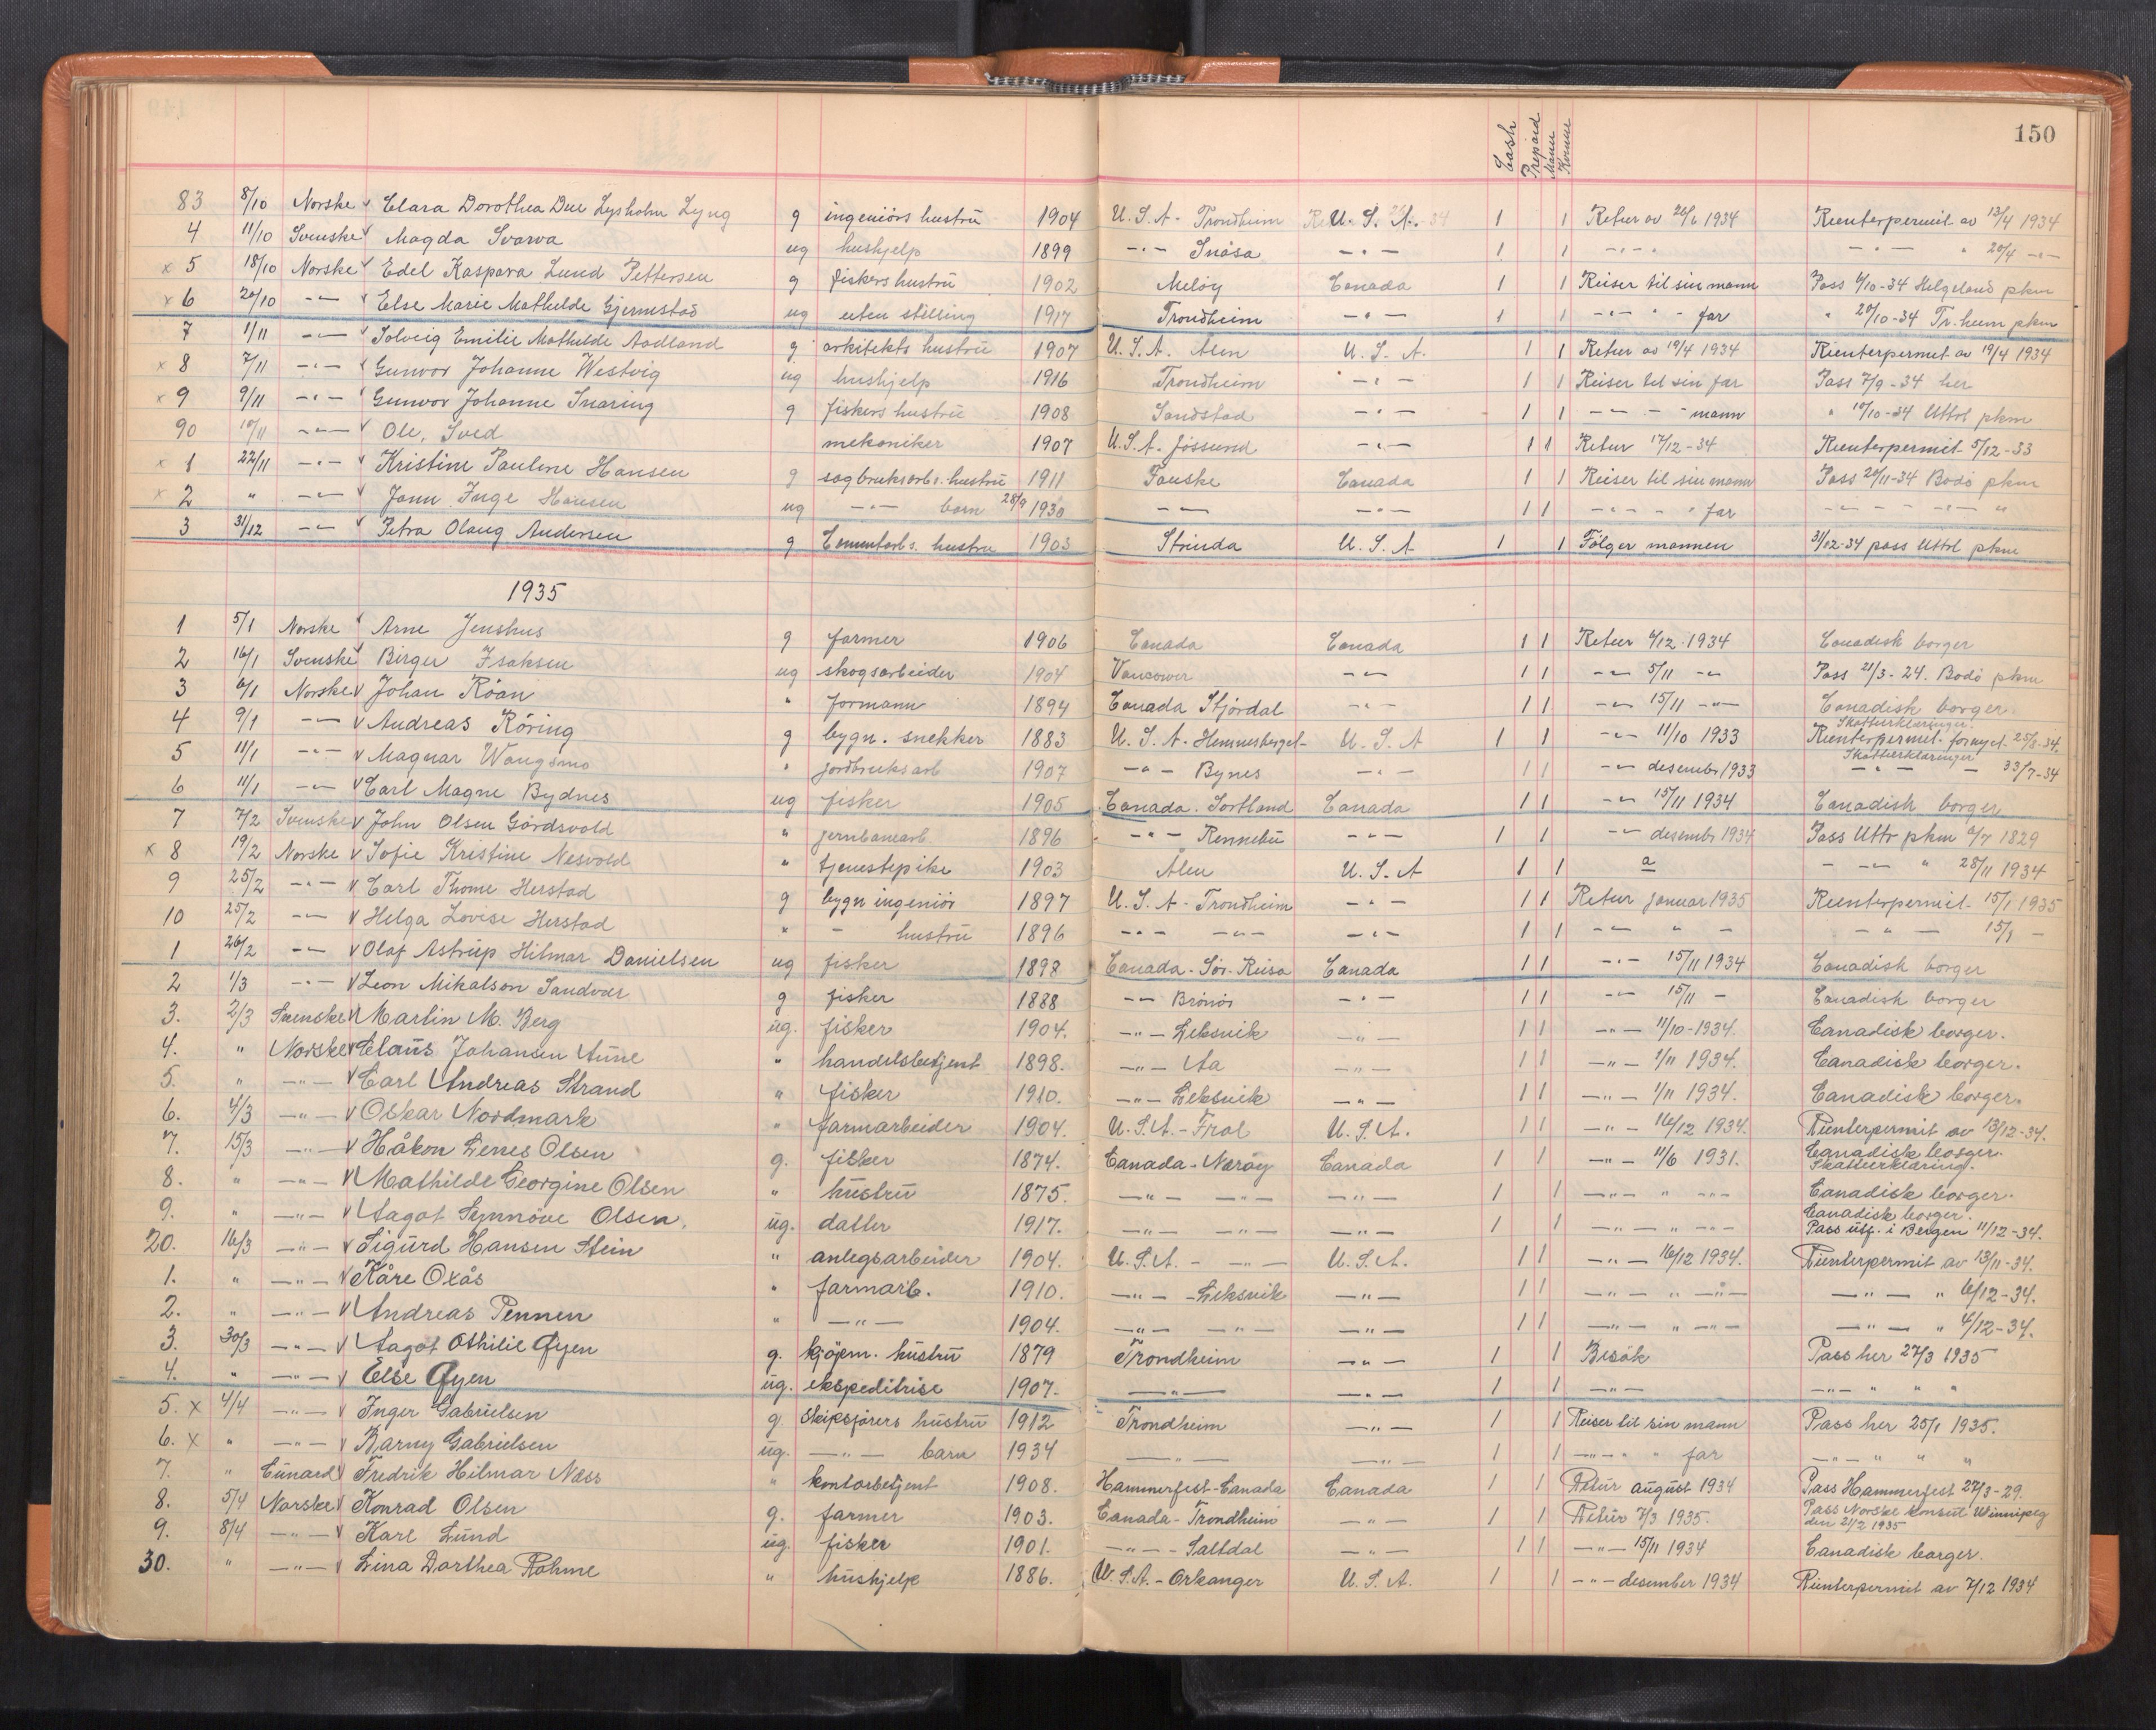 150
Cash Prepaid Mann Kvinne
83 8/10 Norske v Clara Dorothea Due Lysholm Lyng g ingeniörs hustru 1904 U.S.A. - Trondheim U.S.A. 1 1 Retur av 26/6 1934 Reenterpermit av 13/4 1934
4 11/10 Svenske v Magda Svarva ug hushjelp 1899 -"- Snåsa -"- 1 1 -"- " -"- " 20/4 -"-
x 5 18/10 Norske v Edel Kaspara Lund Pettersen g fiskers hustru 1902 Melöy Canada 1 1 Reiser til sin mann Pass 6/10-34 Helgeland pkm
x 6 20/10 -"- v Else Marie Mathilde Gjermstad ug uten stilling 1917 Trondheim -"- 1 1 -"- " - far " 20/10-34 Tr.heim pkm
7 1/11 -"- Solveig Emilie Mathilde Aadland g arkitekts hustru 1907 U.S.A. Ålen U.S.A. 1 1 Retur av 19/4 1934 Reenterpermit av 19/4 1934
x 8 7/11 -"- v Gunvor Johanne Westvig ug hushjelp 1916 Trondheim -"- 1 1 Reiser til sin far Pass 7/9-34 her
x 9 9/11 -"- v Gunvor Johanne Snaring g fiskers hustru 1908 Sandstad -"- 1 1 -"- - - mann " 10/10-34 Uttrl pkm
90 10/11 -"- v Ole, Sved mekaniker 1907 U.S.A. Jössund -"- 1 1 Retur 17/12-34 Reenterpermit 5/12-33
x 1 22/11 -"- v Kristine Pauline Hansen g sagbruksarb.s. hustru 1911 Fauske Canada 1 1 Reiser til sin mann Pass 20/11-34 Bodö pkm
x 2 " -"- v Jann Inge Hansen ug -"- barn 28/9 1930 -"- -"- 1 1 -"- - " far -"- - - -"- "
3 31/12 -"- v Petra Olaug Andersen g Cementarb.s. hustru 1903 Strinda U.S.A 1 1 Fölger mannen 31/12-34 pass Uttrl pkm
1935
1 5/1 Norske v Arne Jenshus g farmer 1906 Canada Canada 1 1 Retur 4/12.1934 Canadisk borger
2 16/1 Svenske v Birger Isaksen ug skogsarbeider 1904 Vancower -"- 1 1 -"- 5/11 -"- Pass 21/3-24. Bodö pkm
3 6/1 Norske v Johan Röan " formann 1894 Canada Stjördal -"- 1 1 -"- 15/11 -"- Canadisk borger
4 9/1 -"- v Andreas Röring g bygn. snekker 1883 U.S.A. - Hemnesberget - U.S.A 1 1 -"- 11/10 1933 Skatteerklæringer. Reenterpermit. fornyet 25/8-34.
5 11/1 -"- v Magnar Wangsmo " jordbruksarb 1907 -"- Bynes -"- 1 1 -"- desembr 1933 Skatteerklæringer -"- - 33/7-34
6 11/1 -"- v Carl Magne Bydnes ug fisker 1905 Canada. Sortland Canada 1 1 -"- 15/11 1934 Canadisk borger
7 7/2 Svenske v John Olsen Gårdsvold " jernbanearb. 1896 -"- Rennebu -"- 1 1 -"- desembr 1934 Pass Uttr pkm 6/7 1829
x 8 19/2 Norske v Sofie Kristine Nesvold " tjenestepike 1903 Ålen U.S.A 1 1 a - -"- " 28/11 1934
9 25/2 -"- v Carl Thome Herstad g bygn ingeniör 1897 U.S.A - Trondheim -"- 1 1 Retur januar 1935 Reenterpermit - 15/1 1935
10 25/2 -"- v Helga Lovise Herstad " - hustru 1896 -"- -"- -"- 1 1 -"- " - -"- - 15/1 -
1 26/2 -"- v Olaf Astrup Hilmar Danielsen ug fisker 1898 Canada - Sör-Reisa Canada 1 1 -"- 15/11 1934 Canadisk borger
2 1/3 -"- v Leon Mikalson Sandvær g fisker 1888 -"- Brönöy -"- 1 1 -"- 15/11 - Canadisk borger
3. 2/3 Svenske v Martin M. Berg ug. fisker 1904. -"- Leksvik -"- 1 1 -"- 11/10-1934. Canadisk borger.
4. " Norske v Claus Johansen Aune " handelsbetjent 1898. -"- Aa -"- 1 1 -"- 1/11 1934. Canadisk borger.
5. " -"- v Carl Andreas Strand " fisker 1910. -"- Leksvik -"- 1 1 -"- 1/11 1934. Canadisk borger.
6. 4/3 -"- v Oskar Nordmark " farmarbeider 1904. U.S.A. - Frol U.S.A. 1 1 -"- 16/12 1934. Reenterpermit av 13/12-34.
7. 15/3 -"- v Håkon Lenes Olsen g. fisker 1874. Canada - Næröy Canada 1 1 -"- 11/6 1931. Canadisk borger. Skatteerklæring.
8. " -"- v Mathilde Georgine Olsen " hustru 1875. -"- -"- -"- 1 1 -"- " -"- Canadisk borger.
9. " -"- v Aagot Synnöve Olsen. ug. datter 1917. -"- -"- -"- 1 1 -"- " -"- Canadisk borger. Pass utf. i Bergen 11/12-34.
20. 16/3 -"- v Sigurd Hansen Stein " anlegsarbeider 1904. U.S.A. - -"- U.S.A. 1 1 -"- 16/12 1934. Reenterpermit av 13/11-34.
1. " -"- v Kåre Oxås " farmarb. 1910. -"- Leksvik -"- 1 1 -"- " -"- -"- " 6/12-34.
2. " -"- v Andreas Pennen " -"- 1904. -"- -"- -"- 1 1 -"- " -"- -"- " 4/12-34.
3. 30/3 -"- v Aagot Othilie Øyen g. kjöpm. hustru 1879 Trondheim -"- 1 1 Besök Pass her 27/3 1935
4. " -"- v Else Øyen ug. ekspeditrise 1907. -"- -"- 1 1 -"- -"- " " "
5. x 4/4 -"- v Inger Gabrielsen g. Skipsförers hustru 1912 Trondheim -"- 1 1 Reiser til sin mann Pass her 25/1 1935.
6. x " -"- v Barny Gabrielsen ug. -"- barn 1934 -"- -"- 1 1 -"- " " far -"- " " "
7. " Cunard v Fredrik Hilmar Næss " kontorbetjent 1908. Hammerfest - Canada Canada 1 1 Retur august 1934 Pass Hammerfest 27/3-29.
8. 5/4 Norske v Konrad Olsen g. farmer 1903. Canada - Trondheim -"- 1 1 Retur 7/3 1935. Pass Norske konsul Winnipeg den 21/2 1935
9. 8/4 -"- v Karl Lund ug. fisker 1901. -"- - Saltdal -"- 1 1 -"- 15/11 1934 Canadisk borger.
30. " -"- v Lina Dorthea Rohme " hushjelp 1886. U.S.A. - Orkanger U.S.A. 1 1 -"- desember 1934 Reenterpermit av 7/12 1934